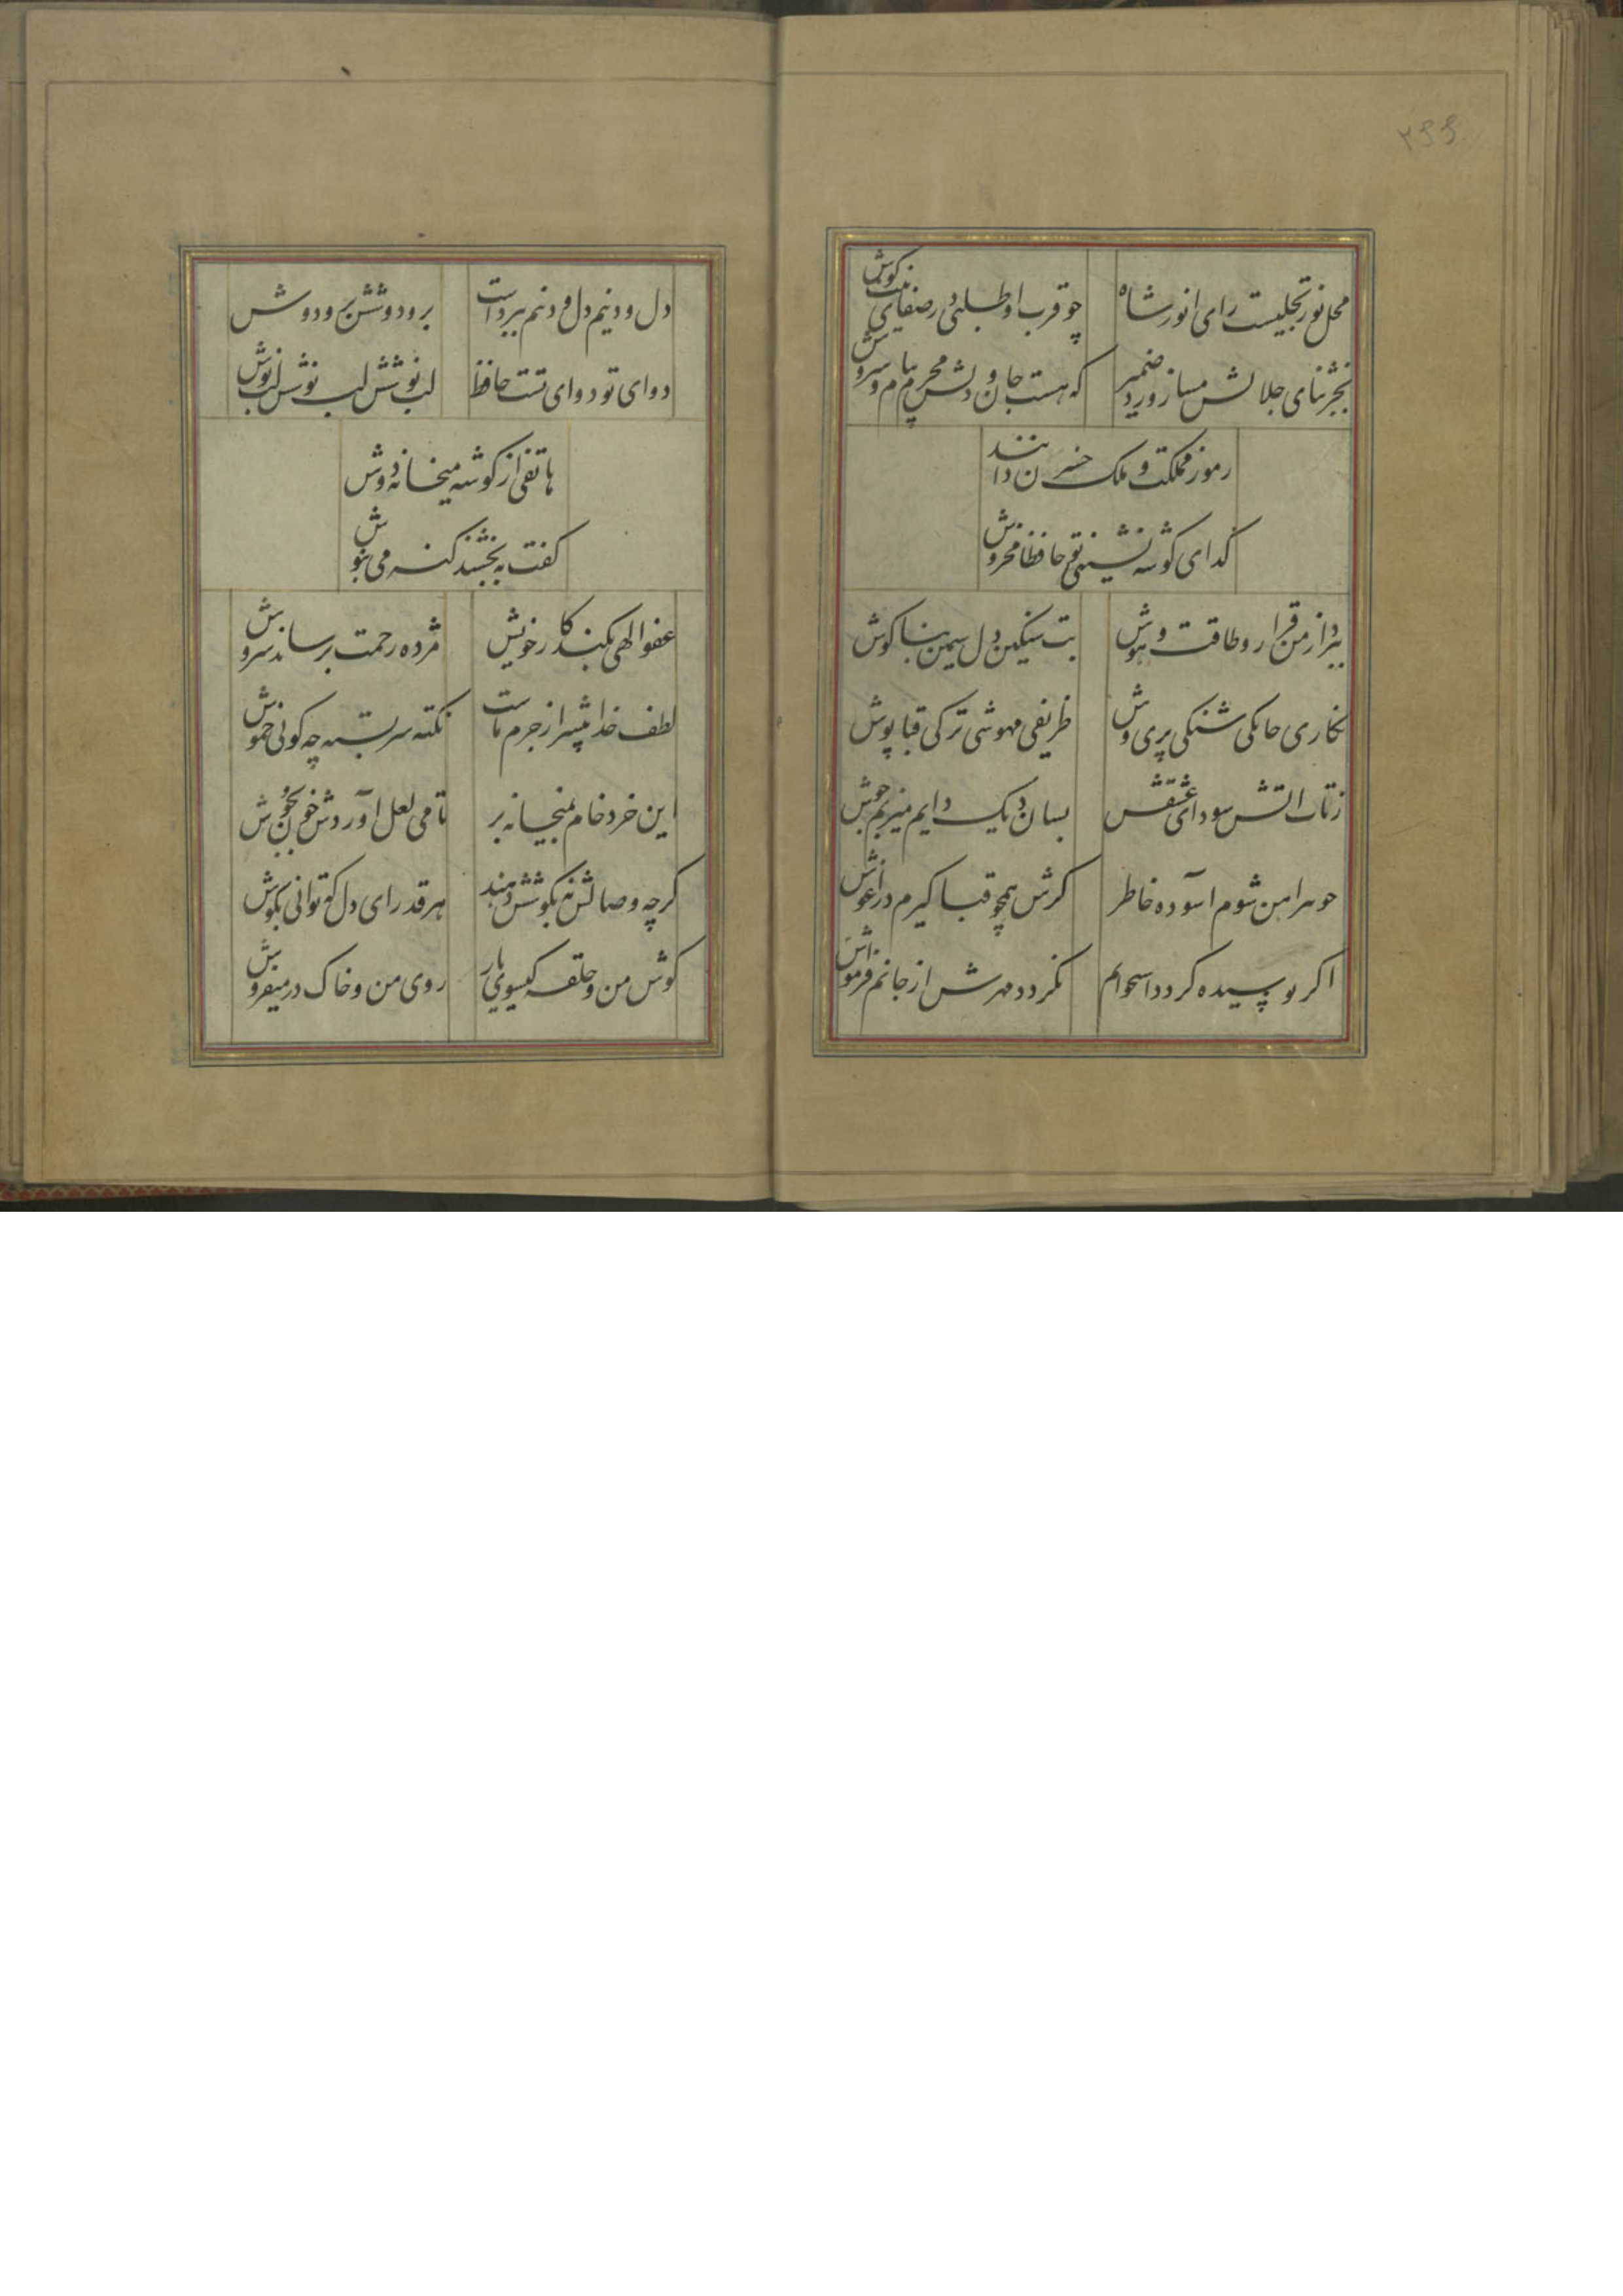 ۲۶۶
محل نور تجلیست رای انور شاه
چو قرب او طلبی در صفای نیت کوش
بجز ثنای جلالش مساز ورد ضمیر
که هست جان و دلش محرم پیام سروش
رموز مملکت و ملک خسروان دانند
کدای کوشه نشینی تو حافظا مخروش
ببرد از من قرار و طاقت و هوش
بت سنکین دل سیمین بناکوش
نکاری چابکی شنکی پری وش
ظریفی مهوشی ترکی قباپوش
زتاب اتش سودای عشقش
بسان دیک دایم میزنم جوش
چو پیراهن شوم اسوده خاطر
کرش همچو قبا کیرم در اغوش
اکر پوسیده کردد استخوانم
نکردد مهرش از جانم فراموش
دل و دینم دل و دینم ببرداست
بر و دوشش بر و دوش
دوای تو دوای تست حافظ
لب نوشش لب نوشش لب نوش
هاتفی از کوشه میخانه دوش
کفت ببخشند کنه می بنوش
عفو الهی بکند کار خویش
مژده رحمت برساند سروش
لطف خدا بیشتر از جرم ماست
نکته سربسته چه کوئی خموش
این خرد خام بمیخانه بر
تا می لعل اوردش خون بجوش
کرچه وصالش نه بکوشش دهند
هر قدر ای دل که توانی بکوش
کوش من و حلقه کیسوی یار
روی من و خاک در میفروش